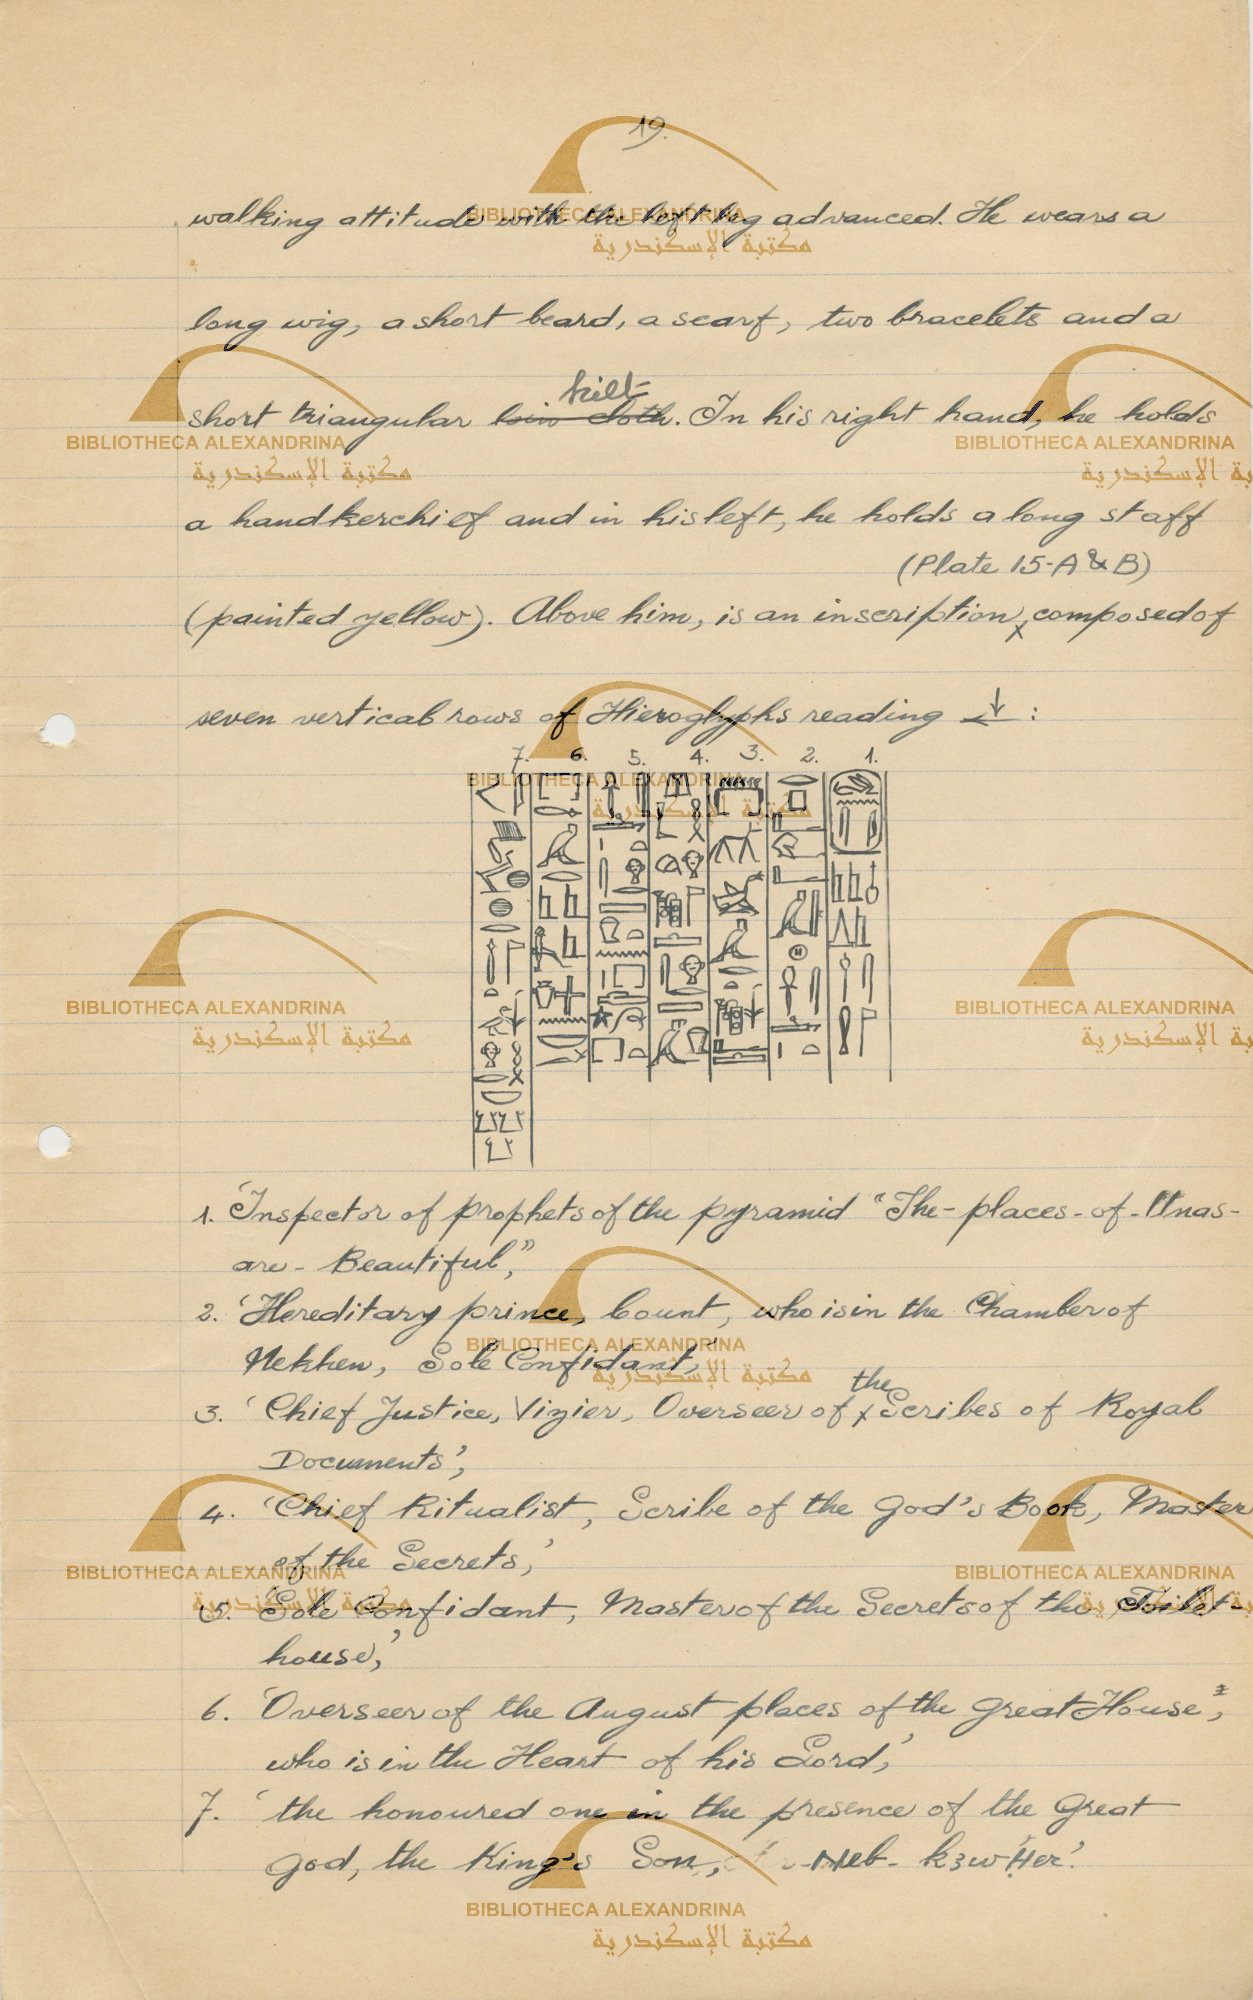 19.
walking attitude with the left leg advanced. He wears a
long wig, a short beard, a scarf, two bracelets and a
kilt
short triangular loin cloth. In his right hand, he holds
a handkerchief and in his left, he holds a long staff
(Plate 15-A & B)
(painted yellow). Above him, is an inscription x composed of
seven vertical rows of Hieroglyphs reading ↓ :
7. 6. 5. 4. 3. 2. 1.
1. 'Inspector of prophets of the pyramid "The-places-of-Unas-
are-Beautiful,"
2. 'Hereditary prince, Count, who is in the Chamber of
Nekhen, Sole Confidant,'
the
3. 'Chief Justice, Vizier, Overseer of x Scribes of Royal
Documents',
4. 'Chief Ritualist, Scribe of the God's Book, Master
of the Secrets,'
5. 'Sole Confidant, Master of the Secrets of the Toilet-
house,'
6. 'Overseer of the August places of the Great House,
who is in the Heart of his Lord,'
7. 'the honoured one in the presence of the Great
God, the King's Son, -Neb-k3w-Ḥer'.
BIBLIOTHECA ALEXANDRINA
مكتبة الإسكندرية